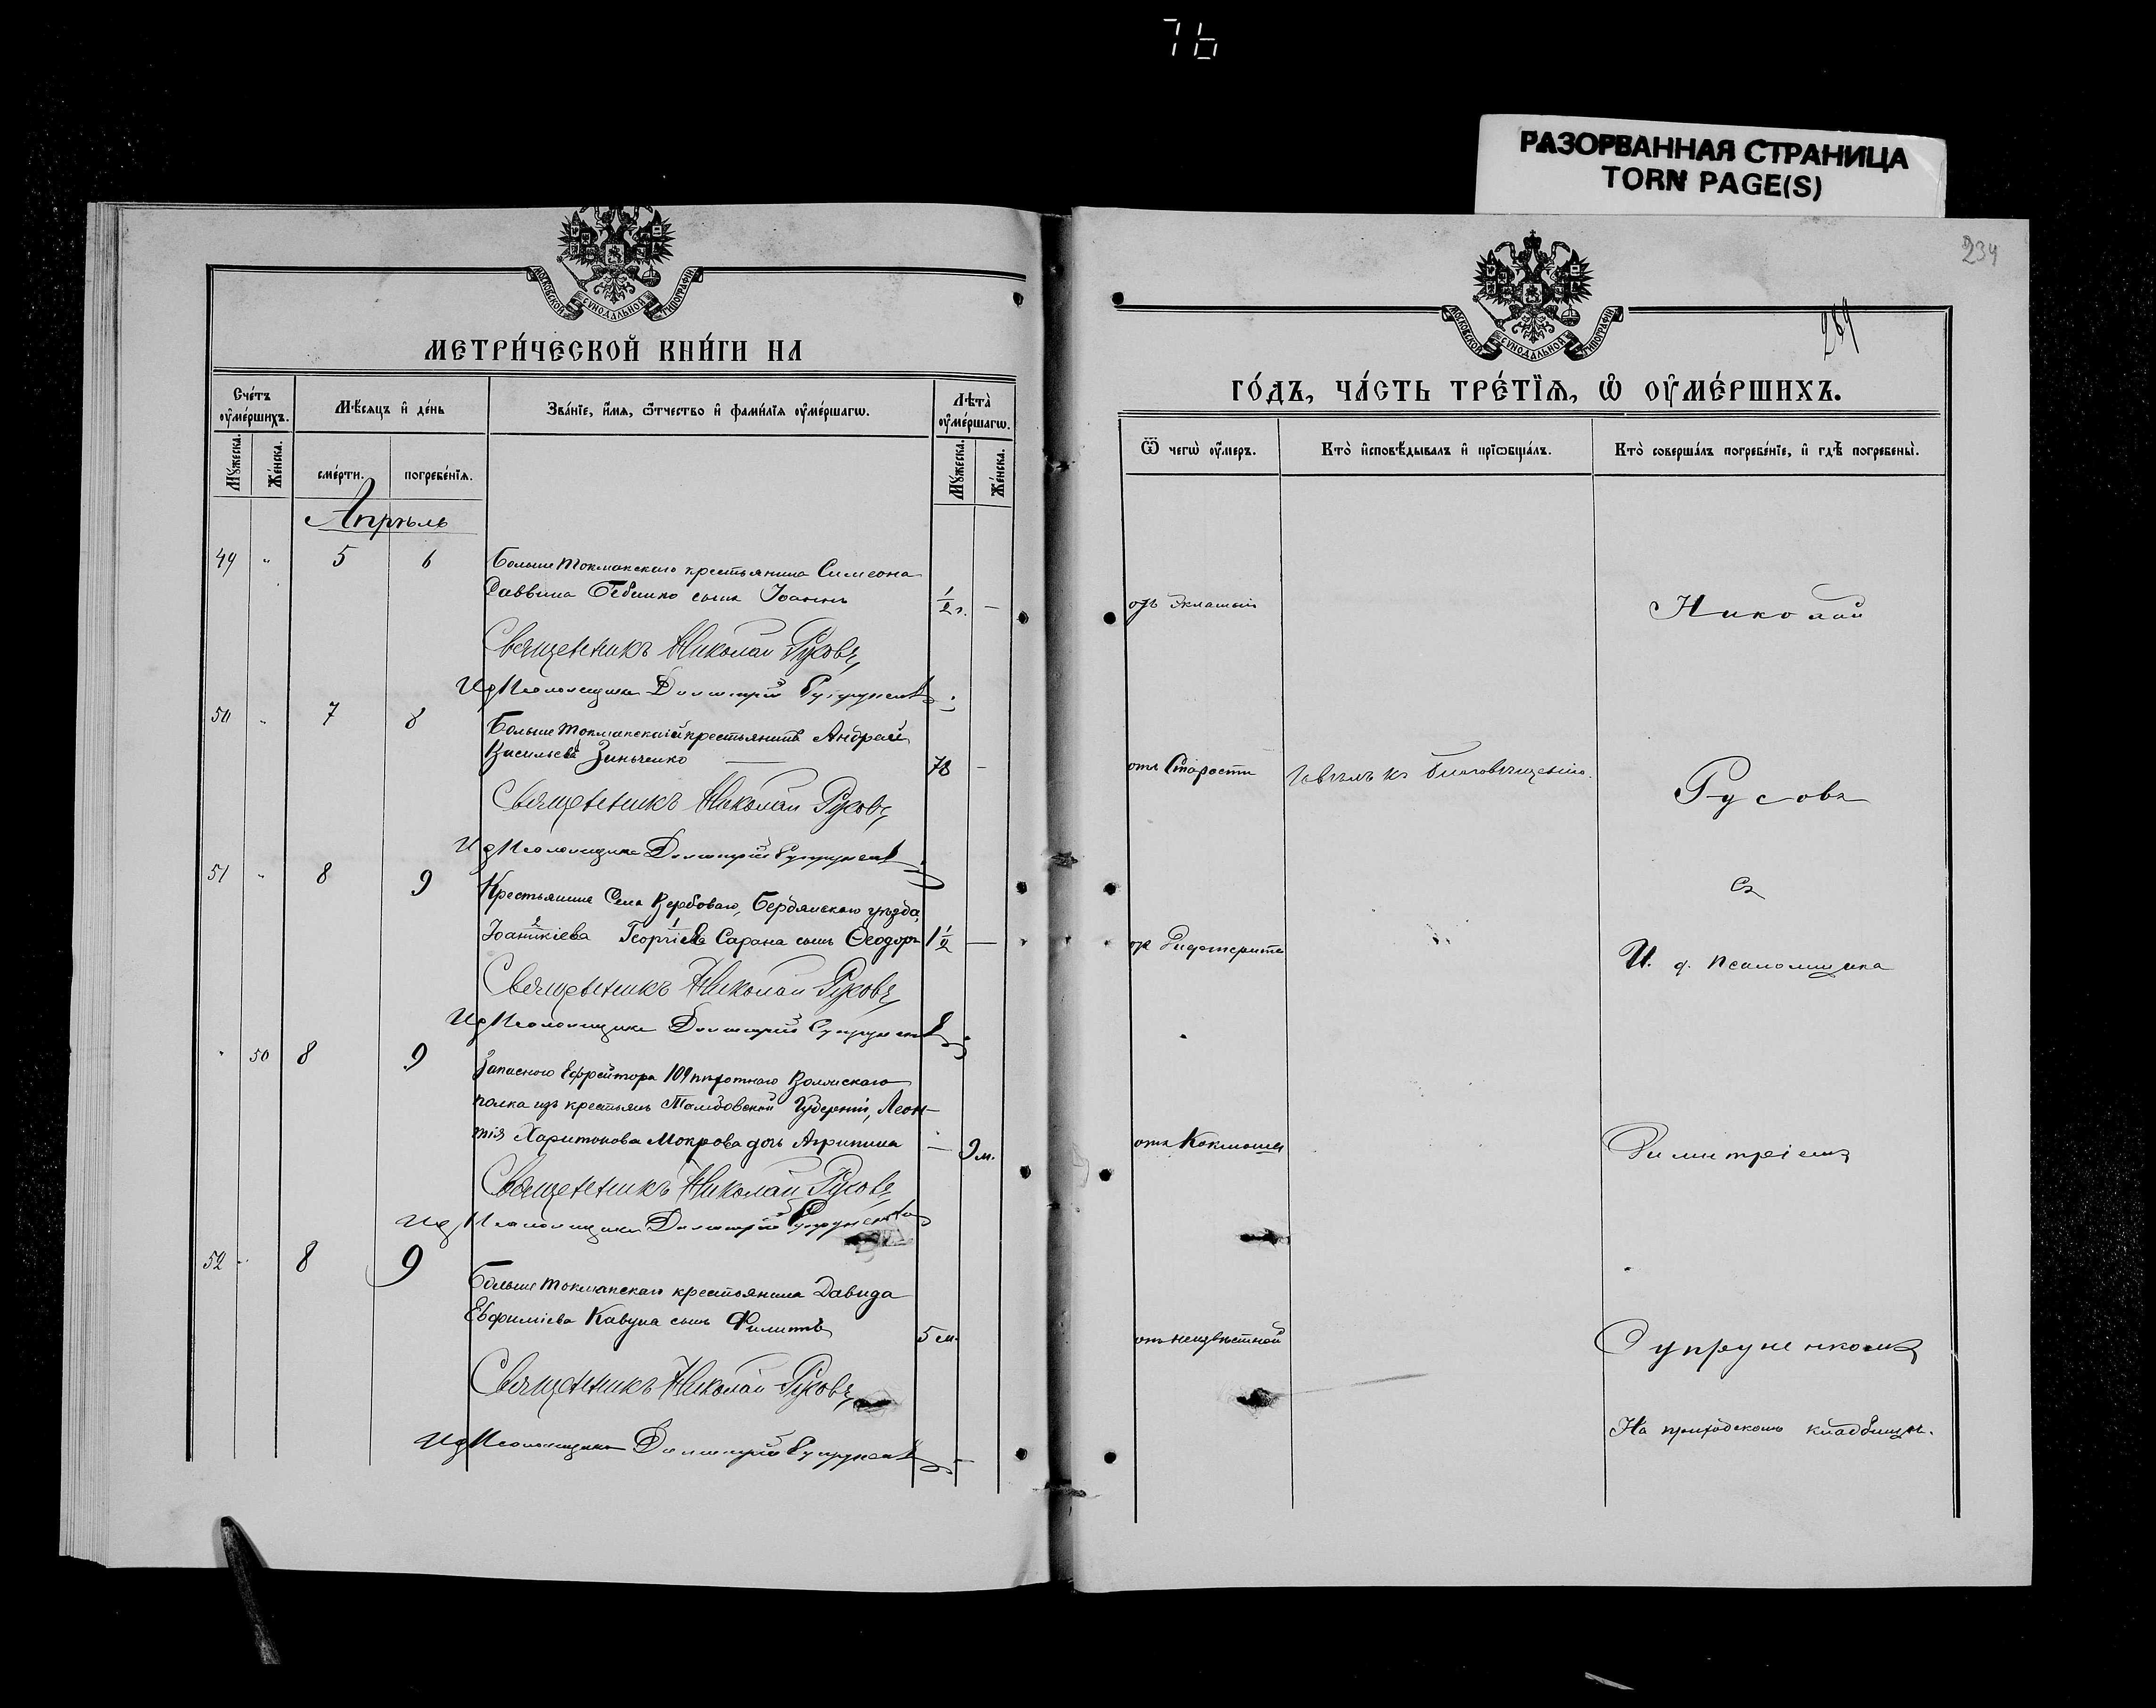 76
РАЗОРВАННАЯ СТРАНИЦА
TORN PAGE(S)
234
МОСКОВСКОЙ СѴНОДАЛЬНОЙ ТИПОГРАФІИ
МЕТРИ́ЧЕСКОЙ КНИ́ГИ НА
Сче́тъ ᲂу҆ме́ршихъ.
Мѣ́сяцъ и҆ де́нь
Зва́нїе, и҆́мѧ, ѻ҆́тчество и҆ фами́лїѧ ᲂу҆ме́ршагѡ.
Лѣта̀ ᲂу҆ме́ршагѡ.
Мꙋ́жеска.
Же́нска.
сме́рти.
погребе́нїѧ.
Мꙋ́жеска.
Же́нска.
Апрѣль
49 " 5 6
Больше Токмакскаго крестьянина Симеона
Саввина сынъ Іоаннъ
1/2 г. —
Священникъ Николай Русовъ
И д Псаломщика Димитрій Супруненко
50 " 7 8
Больше Токмакскій крестьянинъ Андрей
Васильевъ Зинченко
78 —
Священникъ Николай Русовъ
И д Псаломщика Димитрій Супруненко
51 " 8 9
Крестьянина Села Вербоваго, Бердянскаго уѣзда,
Іоанникіева Георгіева Сарана сынъ Ѳеодоръ
1 1/2 —
Священникъ Николай Русовъ
И д Псаломщика Димитрій Супруненко
" 50 8 9
Запаснаго Ефрейтора 109 пѣхотнаго Волжскаго
полка изъ крестьянъ Тамбовской Губерніи, Леон-
тія Харитонова Мокрова дочь Агрипина
— 9 м.
Священникъ Николай Русовъ
И д Псаломщика Димитрій Супруненко
52 " 8 9
Больше Токмакскаго крестьянина Давида
Евфиміева Кавуна сынъ Филиппъ
5 м.
Священникъ Николай Русовъ
И д Псаломщика Димитрій Супруненко
МОСКОВСКОЙ СѴНОДАЛЬНОЙ ТИПОГРАФІИ
ГО́ДЪ, ЧА́СТЬ ТРЕ́ТЇѦ, Ѡ҆ ОУ҆МЕ́РШИХЪ.
Ѿ чегѡ̀ ᲂу҆́меръ.
Кто̀ и҆сповѣ́дывалъ и҆ прїѡбща́лъ.
Кто̀ соверша́лъ погребе́нїе, и҆ гдѣ̀ погребены̀.
отъ Эклампсіи
Николай
отъ Старости
Говѣлъ къ Благовѣщенію.
Русовъ
съ
отъ Дифтерита
И. д. псаломщика
отъ Коклюша
Димитріемъ
отъ неизвѣстной
Супруненкомъ
На приходскомъ кладбищѣ.